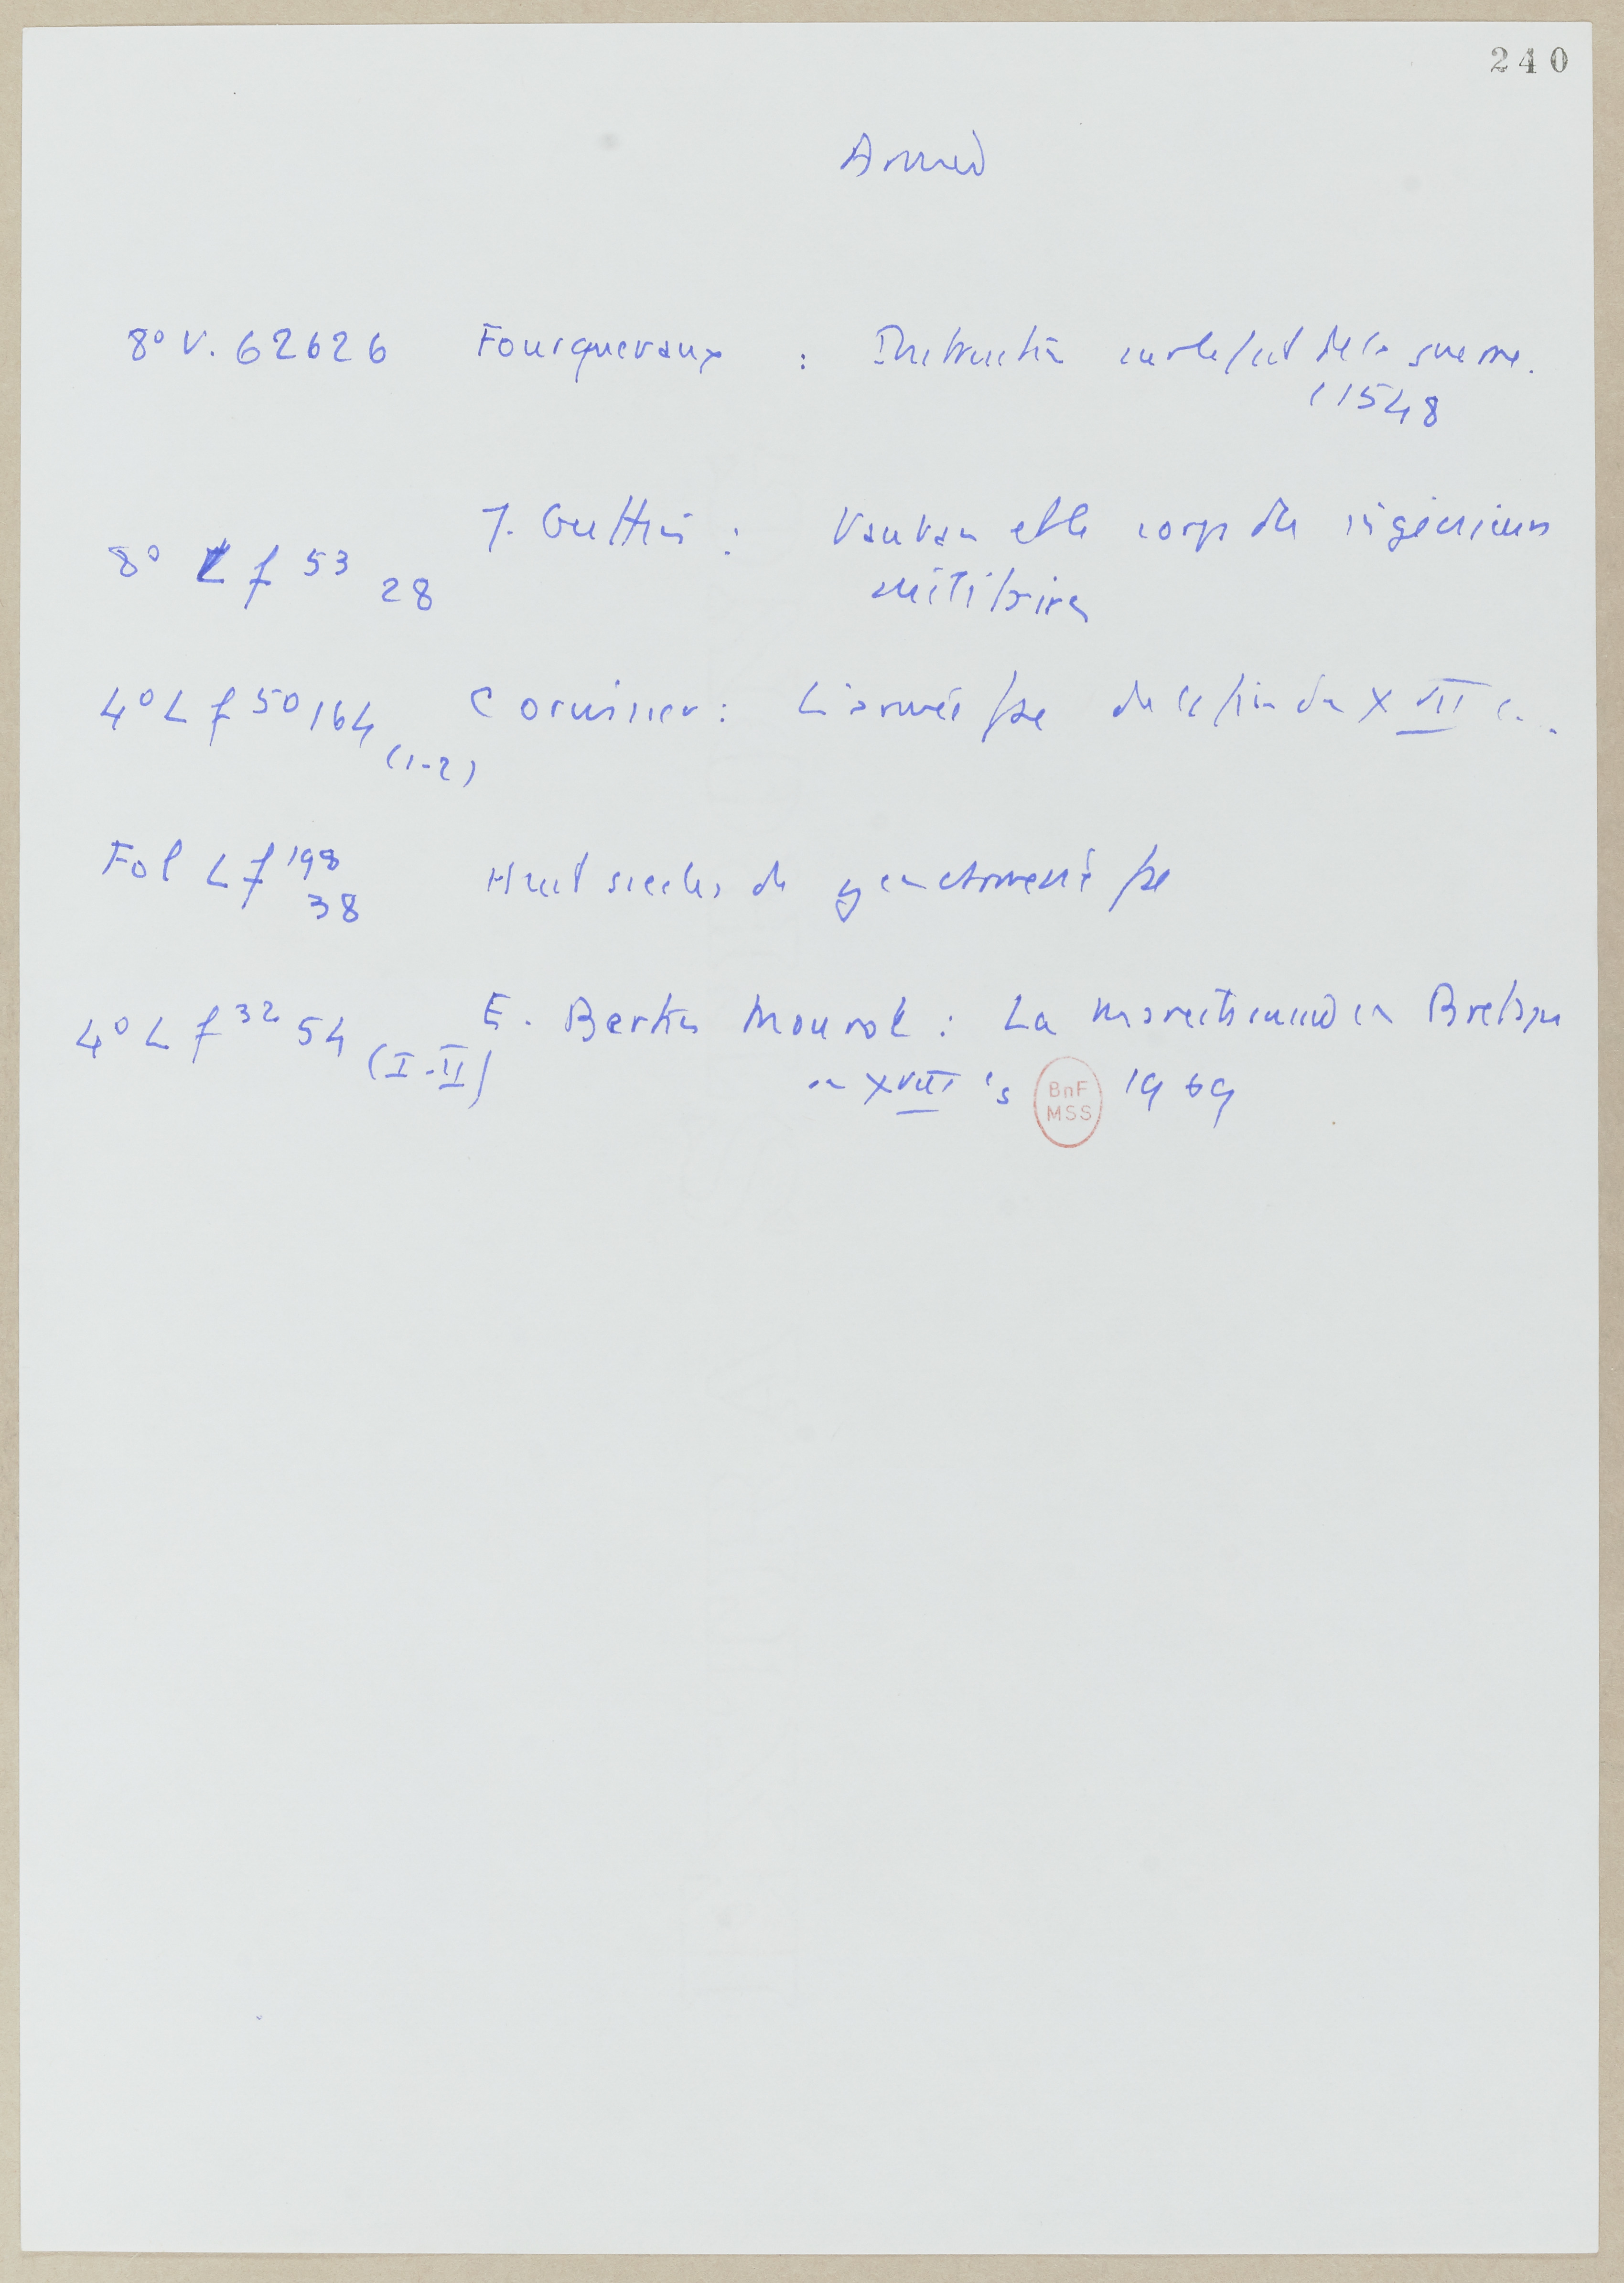 240
Armée
8° V. 62626 Fourquevaux : Instruction sur le fait de la guerre.
(1548
J. Guttin : Vauban et le corps des ingénieurs
8° Lf 53 28 militaires
4° Lf 50 164 (1-2) Corvisier : L'armée fse de la fin du XVII
Fol Lf 198 38 Huit siècles de gendarmerie fse
4° Lf 32 54 (I-II) E. Bertin Mourot : La maréchaussée en Bretagne
au XVIII s 1969
BnF
MSS